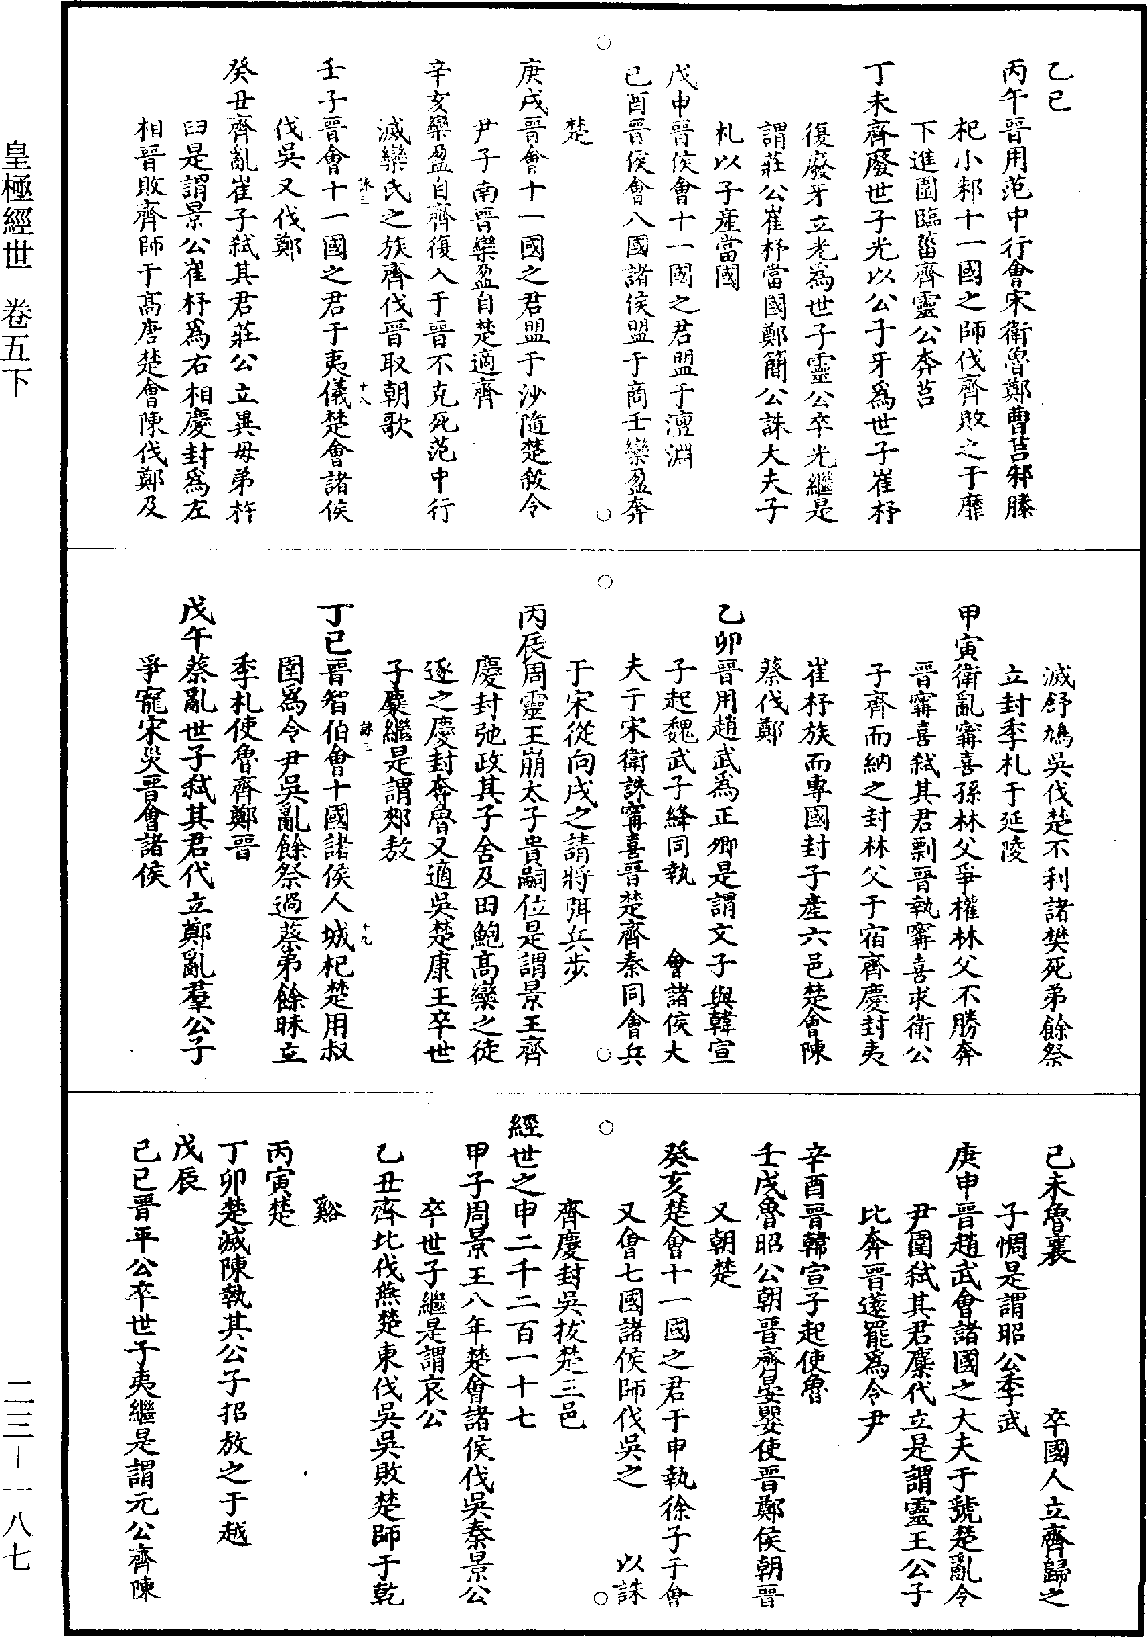 乙巳
丙午晉用范中行會宋衛魯鄭曹莒邾滕
杞小邾十一國之師伐齊敗之于靡
下進圍臨菑齊靈公奔莒
丁未齊廢世子光以公子牙爲世子崔杼
復廢牙立光爲世子靈公卒光繼是
謂莊公崔杼當國鄭簡公誅大夫子
札以子產當國
戊申晉侯會十一國之君盟于澶淵
己酉晉侯會八國諸侯盟于商壬欒盈奔
楚
庚戌晉會十一國之君盟于沙隨楚殺令
尹子南晉欒盈自楚適齊
辛亥欒盈自齊復入于晉不克死范中行
滅欒氏之族齊伐晉取朝歌
壬子晉會十一國之君于夷儀楚會諸侯
伐吳又伐鄭
癸丑齊亂崔子弒其君莊公立異母弟杵
臼是謂景公崔杼爲右相慶封爲左
相晉敗齊師于高唐楚會陳伐鄭及
滅舒鳩吳伐楚不利諸樊死弟餘祭
立封季札于延陵
甲寅衛亂甯喜孫林父爭權林父不勝奔
晉甯喜弒其君剽晉執甯喜求衛公
子齊而納之封林父于宿齊慶封夷
崔杼族而專國封子產六邑楚會陳
蔡伐鄭
乙卯晉用趙武爲正卿是謂文子與韓宣
子起魏武子絳同執 會諸侯大
夫于宋衛誅甯喜晉楚齊秦同會兵
于宋從向戌之請將弭兵步
丙辰周靈王崩太子貴嗣位是謂景王齊
慶封弛政其子舍及田鮑高欒之徒
逐之慶封奔魯又適吳楚康王卒世
子麇繼是謂郟敖
丁巳晉智伯會十國諸侯人城杞楚用叔
圍爲令尹吳亂餘祭過蔡弟餘昧立
季札使魯齊鄭晉
戊午蔡亂世子弒其君代立鄭亂羣公子
爭寵宋災晉會諸侯
己未魯襄 卒國人立齊歸之
子惆是謂昭公季武
庚申晉趙武會諸國之大夫于虢楚亂令
尹圍弒其君麇代立是謂靈王公子
比奔晉薳罷爲令尹
辛酉晉韓宣子起使魯
壬戌魯昭公朝晉齊晏嬰使晉鄭侯朝晉
又朝楚
癸亥楚會十一國之君于申執徐子于會
又會七國諸侯師伐吳之 以誅
齊慶封吳拔楚三邑
經世之申二千二百一十七
甲子周景王八年楚會諸侯伐吳秦景公
卒世子繼是謂哀公
乙丑齊北伐燕楚東伐吳吳敗楚師于乾
谿
丙寅楚
丁卯楚滅陳執其公子招放之于越
戊辰
己巳晉平公卒世子夷繼是謂元公齊陳
皇極經世 卷五下
二三—一八七